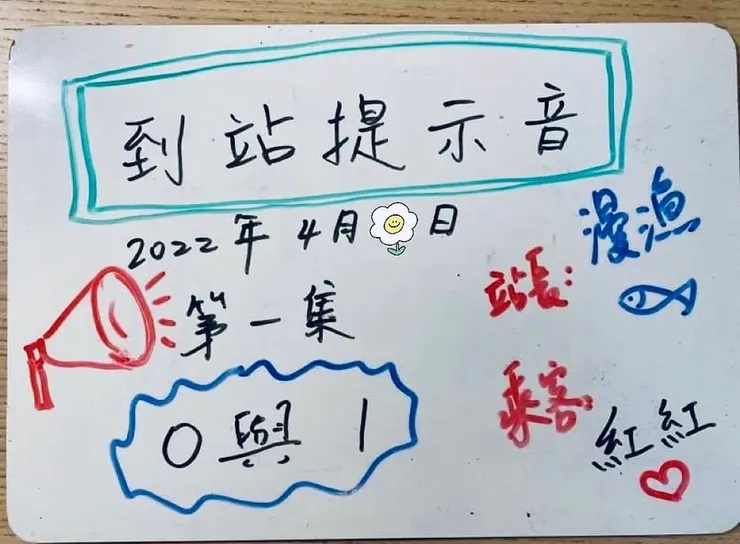 到站提示音
2022年4月 日
第一集
0與1
站長:
漫漁
乘客:
紅紅